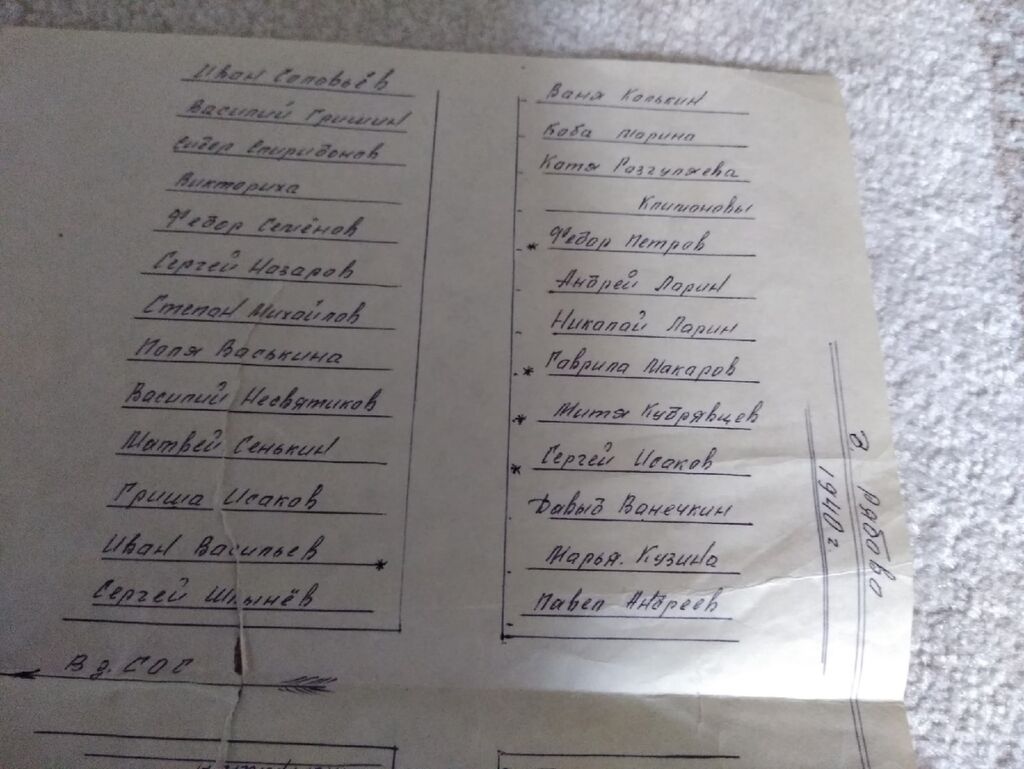 Иван Соловьёв
Василий Гришин
Сидор Спиридонов
Викториха
Фёдор Семёнов
Сергей Назаров
Степан Михайлов
Поля Васькина
Василий Несвятиков
Матвей Сенькин
Гриша Исаков
Иван Васильев *
Сергей Шлынёв
В д. СОС
Ваня Колькин
Коба Марина
Катя Разгуляева
Климановы
* Фёдор Петров
Андрей Ларин
Николай Ларин
* Гаврила Макаров
* Митя Кудрявцев
* Сергей Исаков
Давыд Ванечкин
Марья. Кузина
Павел Андреев
1940 г